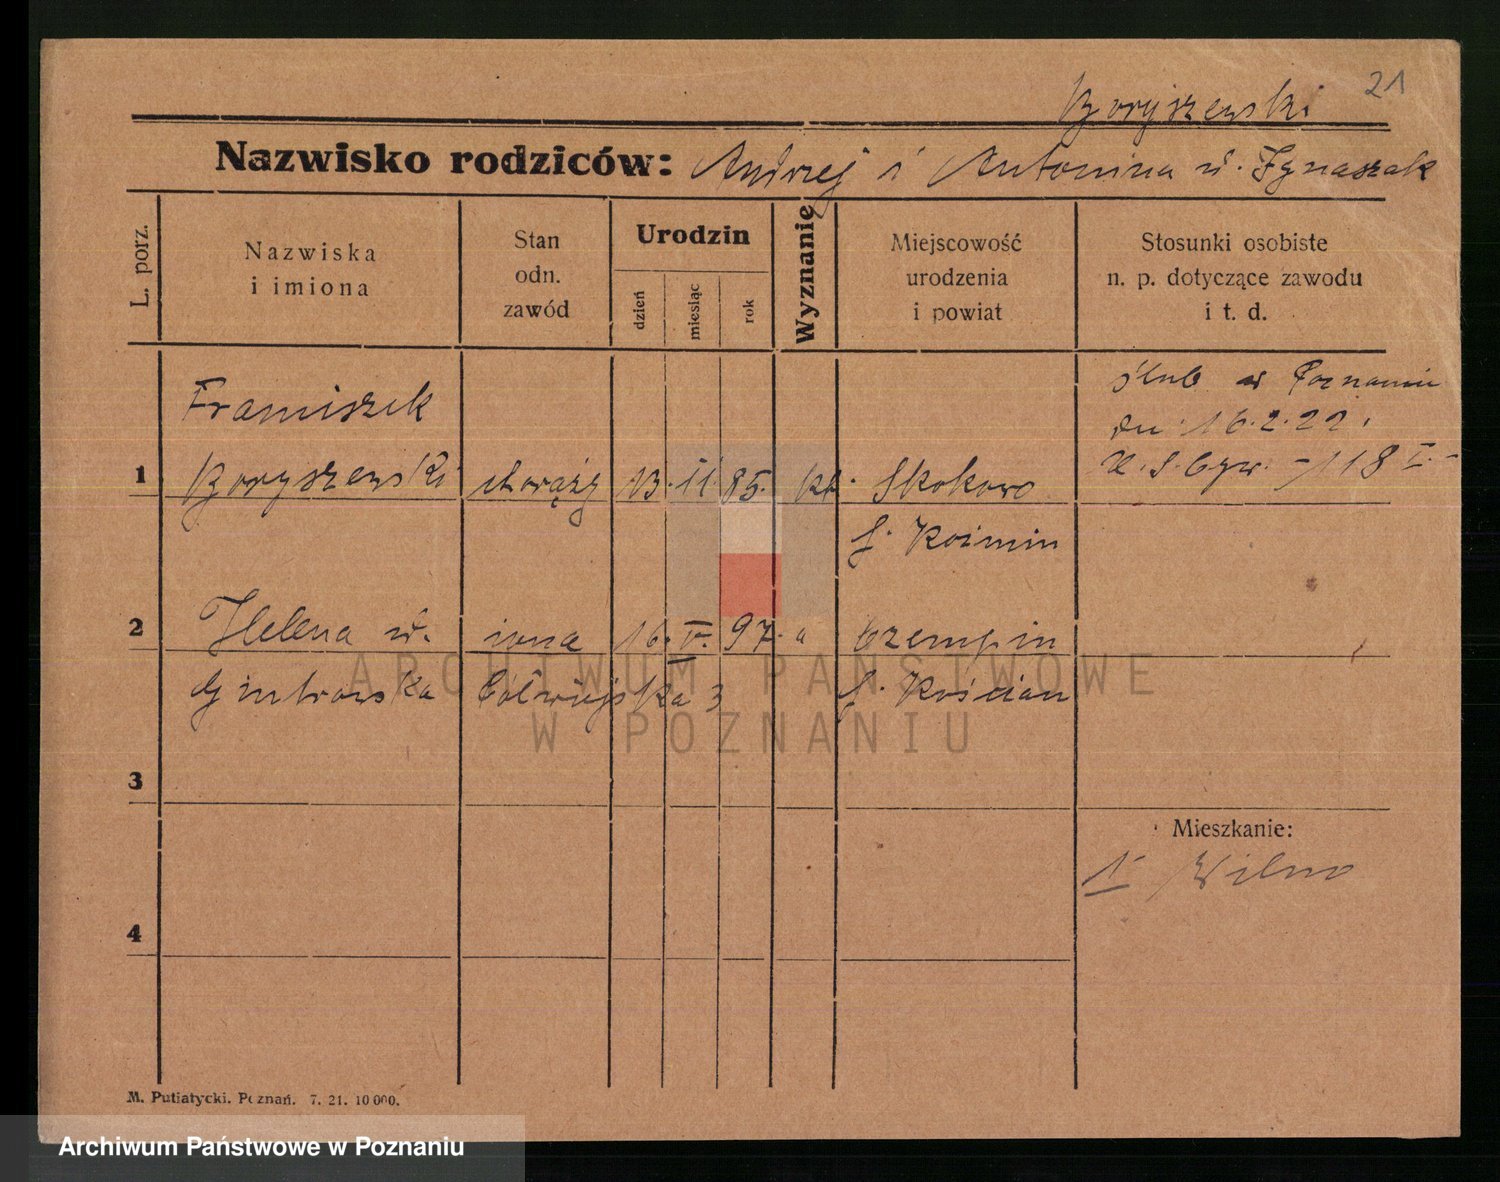 21
Boryszewski
Nazwisko rodziców: Andrzej i Antonina u. Ignaszak
L. porz.
Nazwiska
i imiona
Stan
odn.
zawód
Urodzin
dzień
miesiąc
rok
Wyznanie
Miejscowość
urodzenia
i powiat
Stosunki osobiste
n. p. dotyczące zawodu
i t. d.
Franciszek
ślub w Poznaniu
dn. 16.2.22.
1 Boryszewski chorąży 13. 11. 85. kt. Skokowo
118
p. Koźmin
2 Helena u. żona 16. V. 97. " Czempin
Gintrowska Półwiejska 3 p. Kościan
3
Mieszkanie:
1 Wilno
4
M. Putiatycki. Poznań. 7. 21. 10 000.
ARCHIWUM PAŃSTWOWE
W POZNANIU
Archiwum Państwowe w Poznaniu